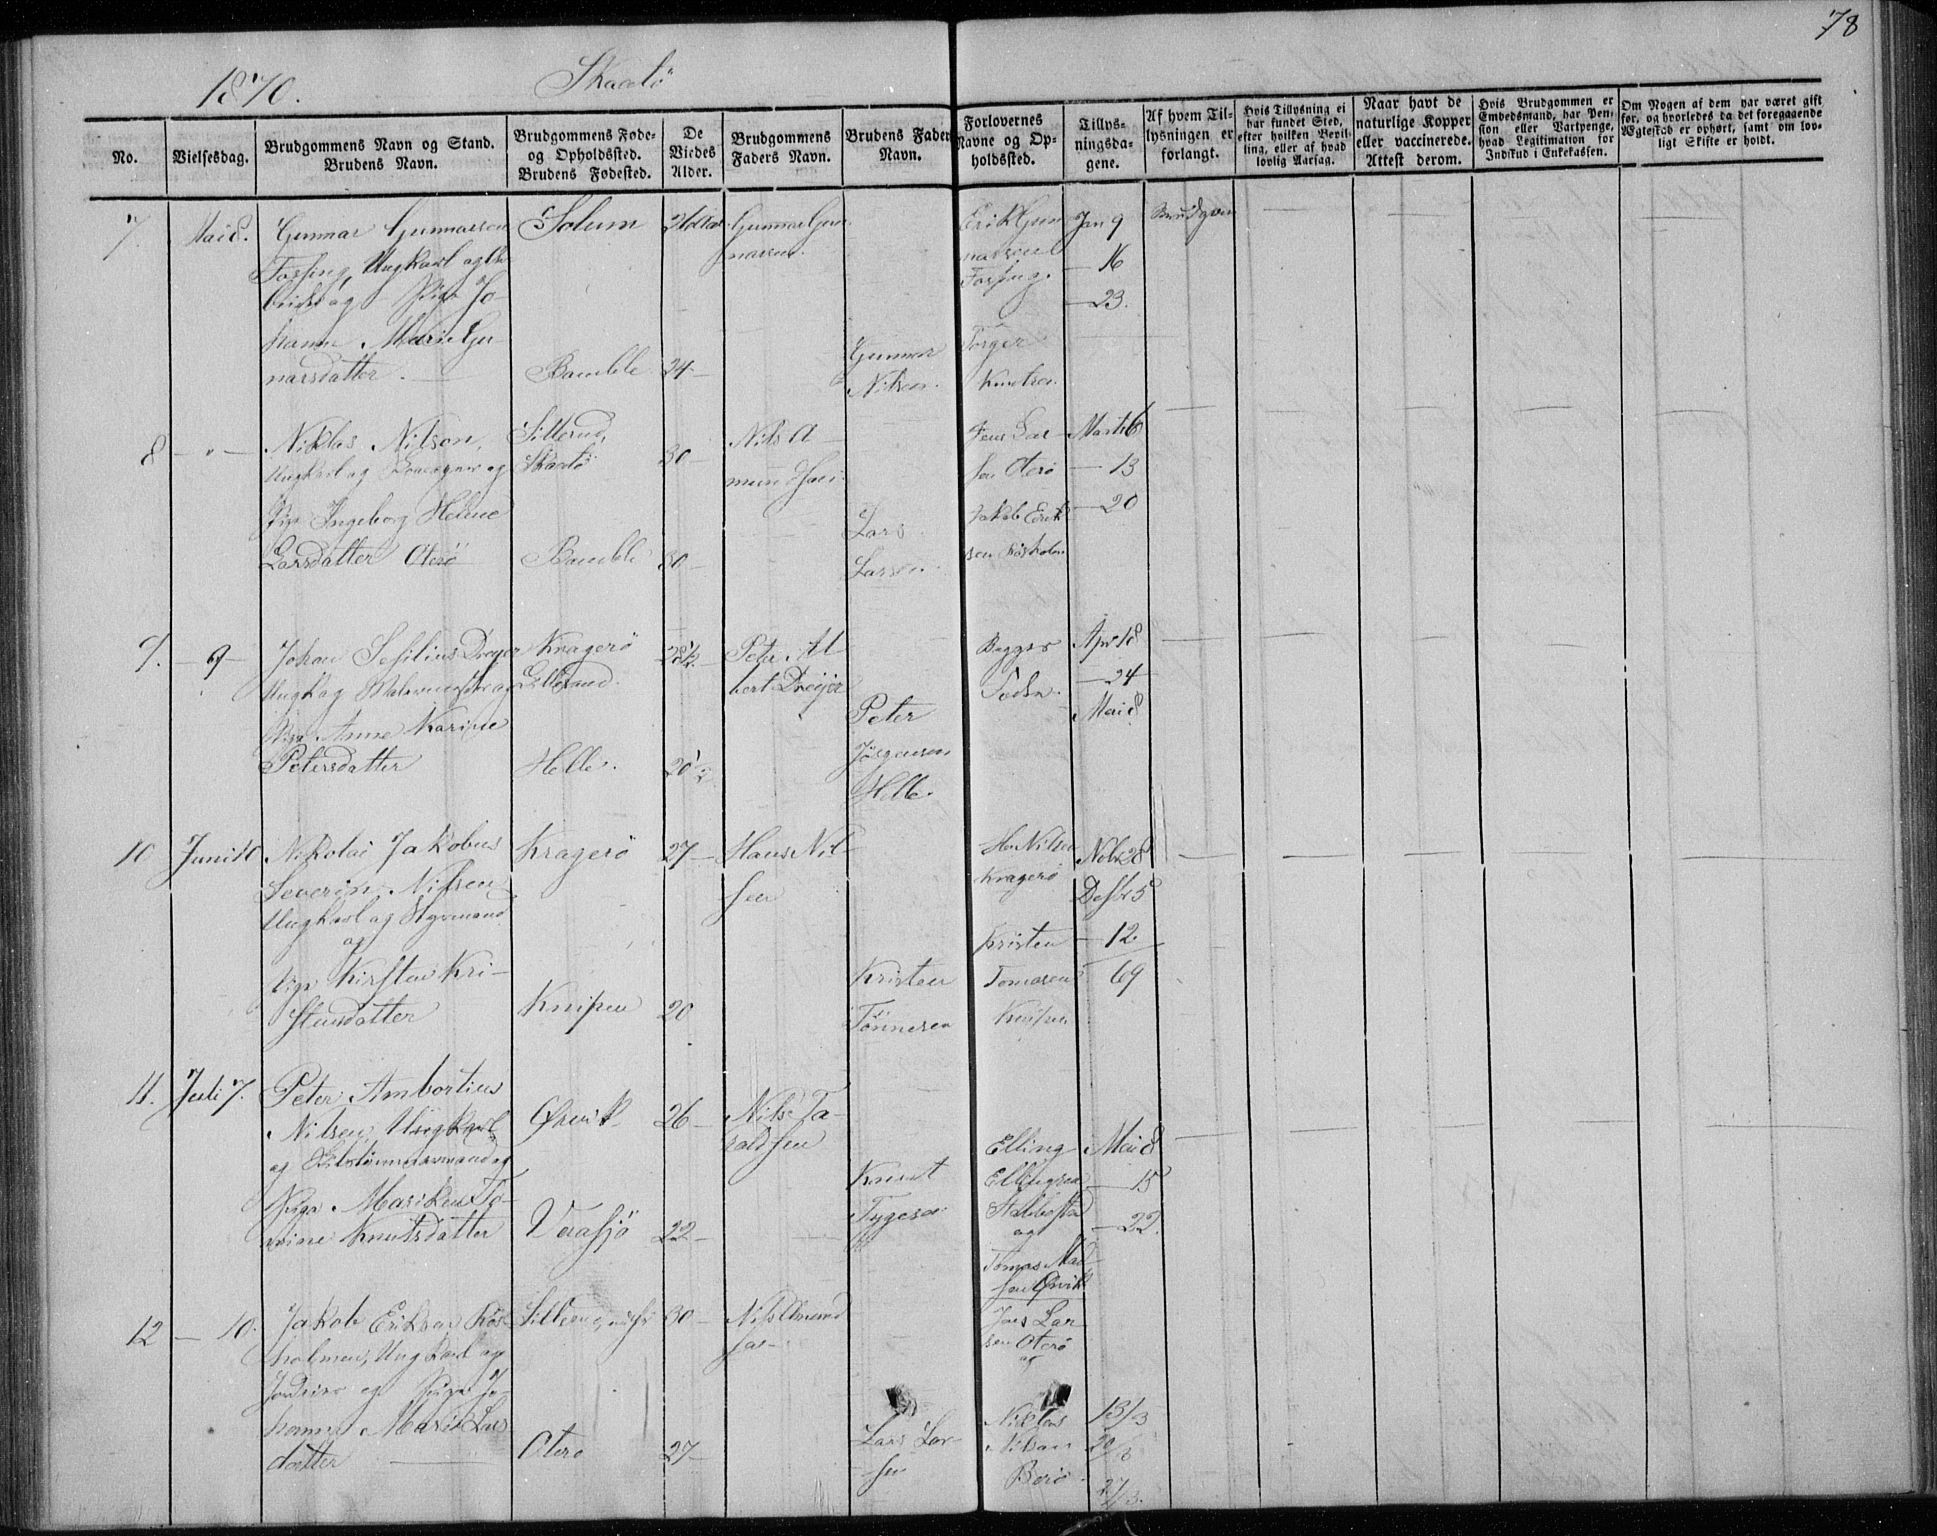 78
1870. Skaatö
No.
Vielsesdag.
Brudgommens Navn og Stand.
Brudens Navn.
Brudgommens Føde-
og Opholdssted.
Brudens Fødested.
De
Viedes
Alder.
Brudgommens
Faders Navn.
Brudens Faders
Navn.
Forlovernes
Navne og Op-
holdssted.
Tillys-
ningsda-
gene.
Af hvem Til-
lysningen er
forlangt.
Hvis Tillysning ei
har fundet Sted,
efter hvilken Bevil-
ling, eller af hvad
lovlig Aarsag.
Naar havt de
naturlige Kopper
eller vaccinerede.
Attest derom.
Hvis Brudgommen er
Embedsmand, har Pen-
sion eller Vartpenge,
hvad Legitimation for
Indskud i Enkekassen.
Om Nogen af dem har været gift
før, og hvorledes da det foregaaende
Ægteskab er ophørt, samt om lov-
ligt Skifte er holdt.
7. Mai 8.
Gunnar Gunnarsen
Fossing, Ungkarl og
og Pige Jo-
hanne Marie Gun
narsdatter.
Solum
Bamble
24
Gunnar Gun
narsen.
Gunnar
Nilsen.
Erik Gun
narsen
Fossing.
Torger
Knutsen.
Jan 9
— 16
— 23.
Brudgom
8 — " —
Niklas Nilson,
Ungkarl og og
Pige Ingeborg Helene
Larsdatter Oterö
Sillerud,
Skaatö
Bamble
30 —
30 —
Nils A
mundsen.
Lars
Larsen.
Jens Lar
sen Oterö
Jakob Erik
sen Rösholmen
Marts 6
— 13
— 20
9. — 9 —
Johan Sefilius Dreyer
Ungk og Malermester og
Pige Anne Karine
Petersdatter
Kragerö
Lillesand.
Helle.
28½ —
20½
Peter Al
bert Dreijer
Peter
Jörgensen
Helle.
Apr 18
— 24
Mai 8
10 Juni 10
Nikolai Jakobus
Severin Nilsen
Ungkarl og Styrmand
og
Pige Kirsten Kri-
stensdatter
Kragerö
Knipen
27 —
20
Hans Nil
sen
Kristen
Tönnesen
Hr Nilsen
Kragerö
Kristen
Tomasen
Knipen
Novbr 28
Desbr 5
— 12
69
11. Juli 7.
Peter Ambortius
Nilsen Ungkarl
og og
Pige Mariken To-
mine Knutsdatter
Ørvik
Vefasjö
26 —
22 —
Nils Ta-
raldsen
Knut
Tygesen
Elling
Ellingsen
Stabbestad
og
Tomas Mad-
sen Ørvik
Mai 8
— 15
— 22.
12 — 10.
Jakob Eriksen Rös-
holmen, Ungkarl og
Jordeier og Pige Jo-
hanne Marie Lars
datter
Sillerud,
Oterö
30 —
27 —
Nils Amund
sen
Lars Lar-
sen
Jens Lar
sen Oterö
og
Niklas
Nilsen
Berö
13/3
20/3
27/3.